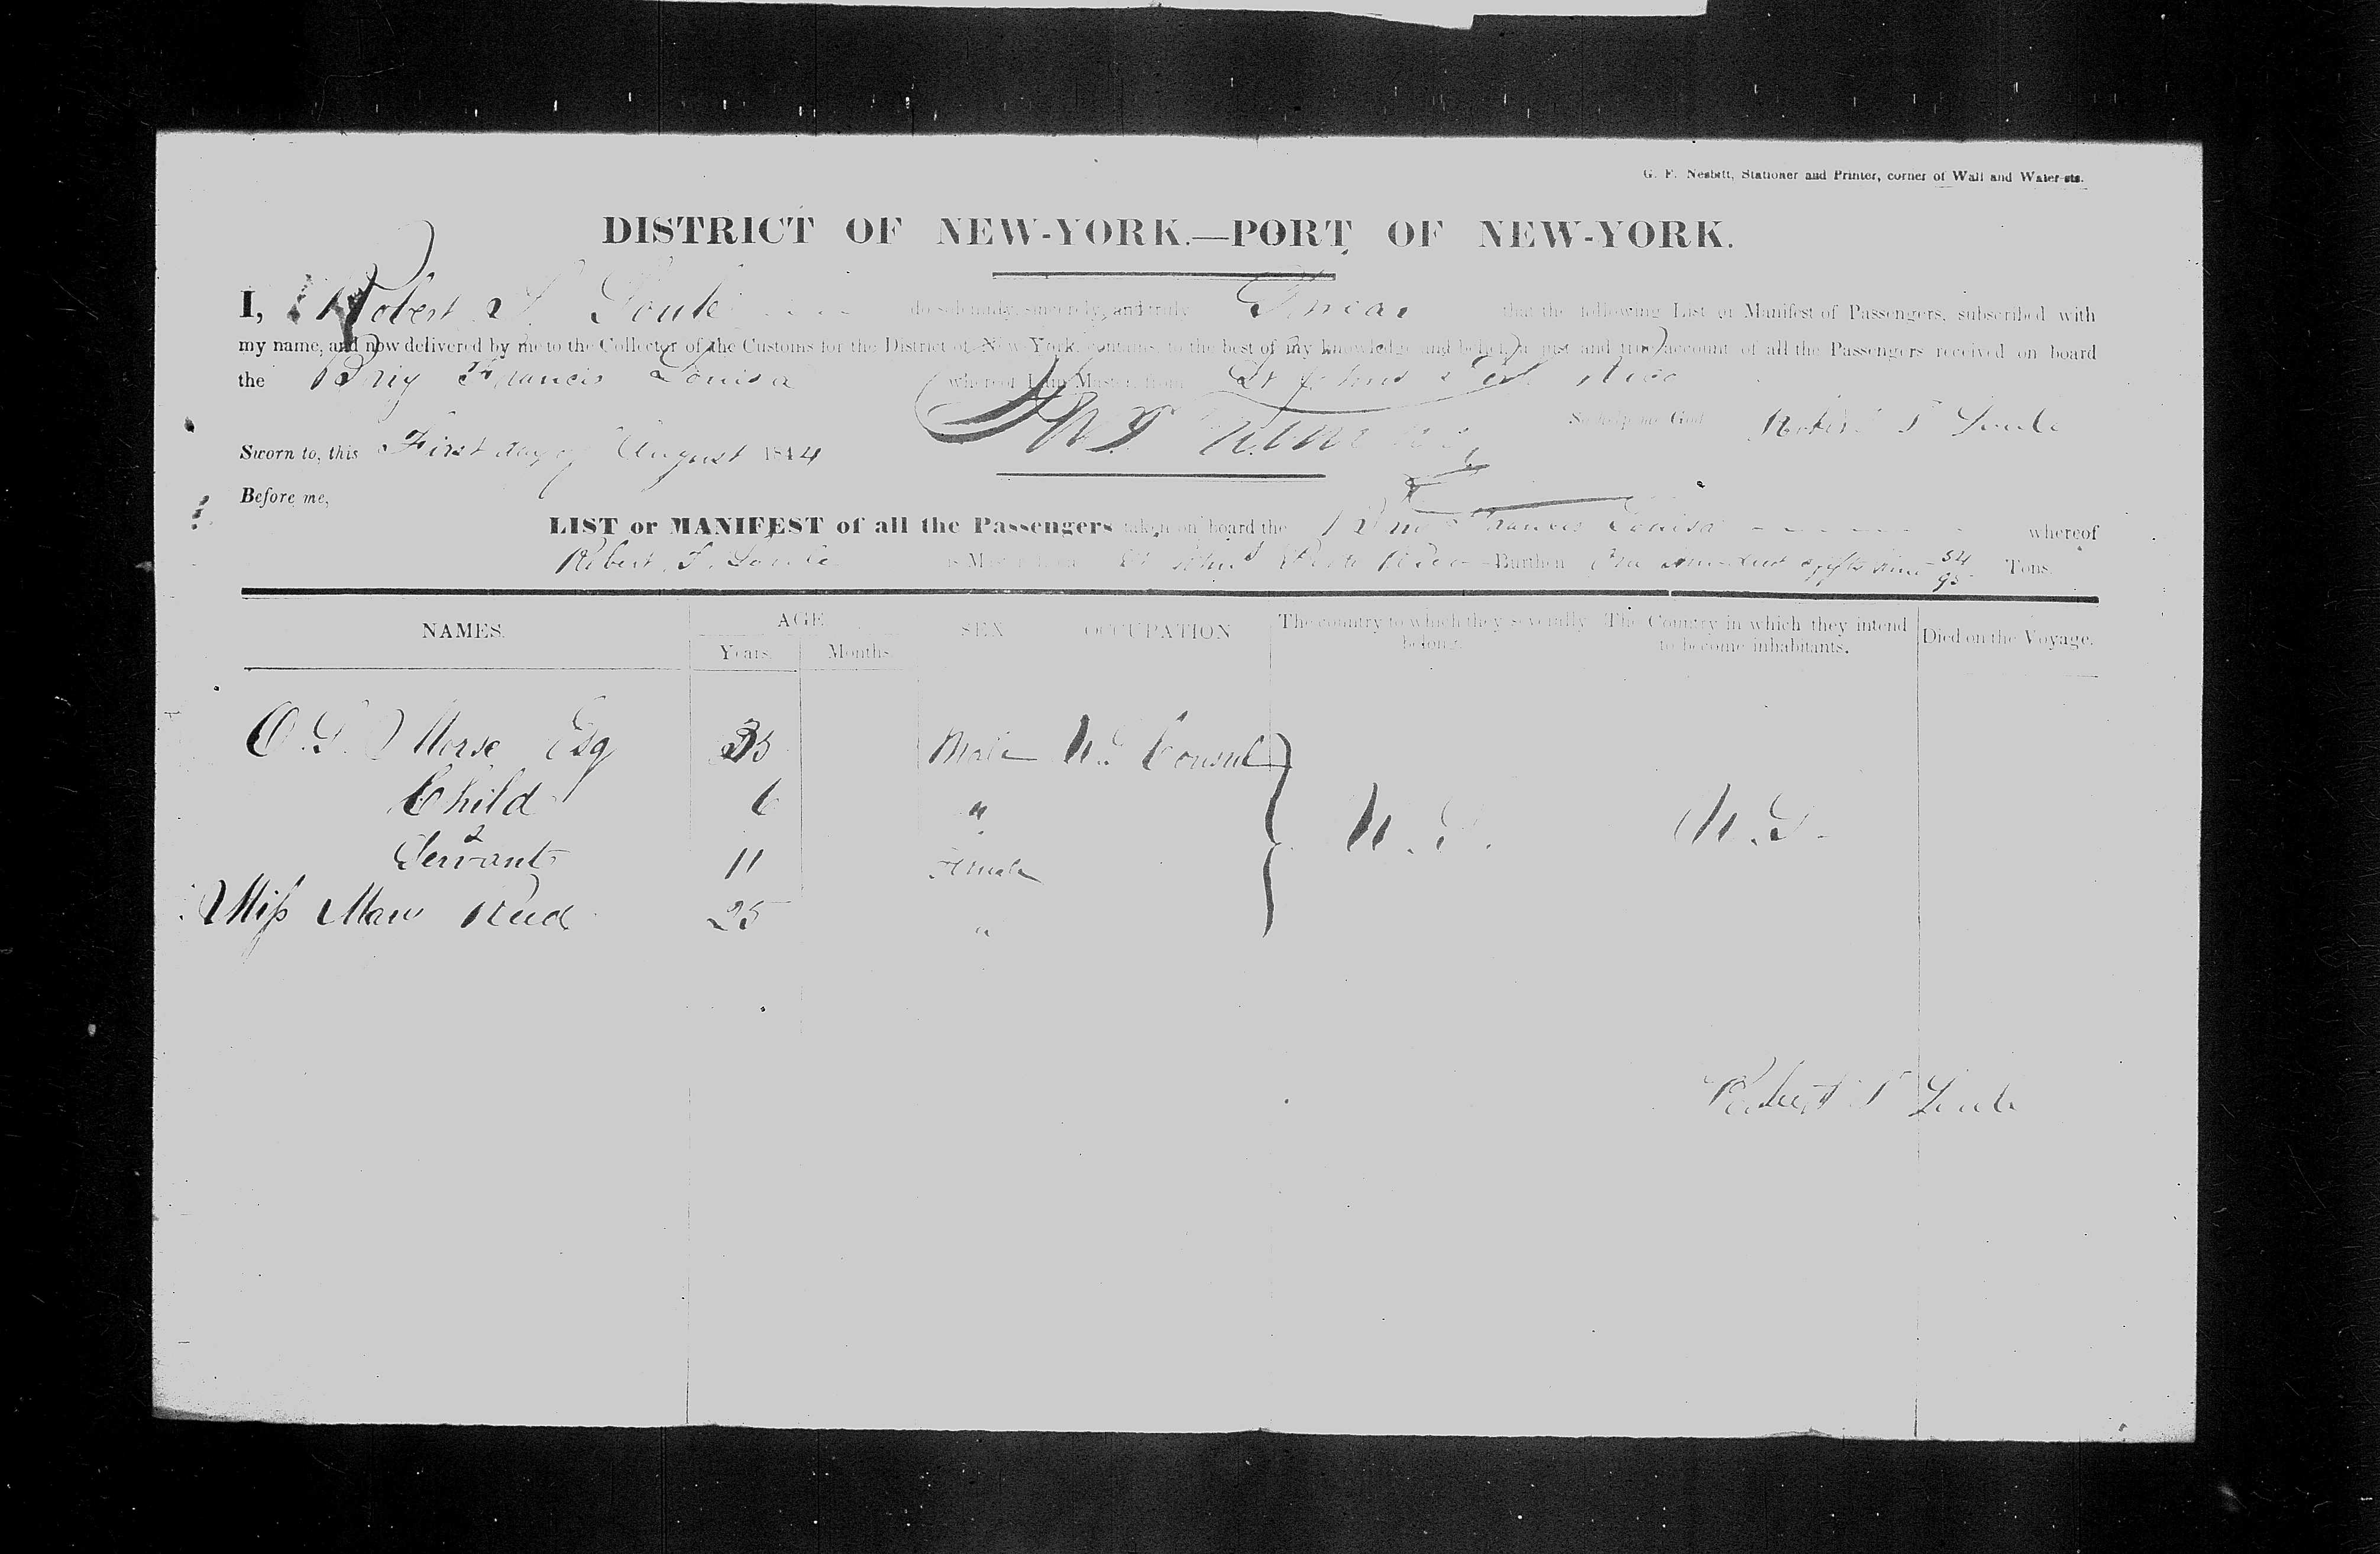 G. F. Nesbitt, Stationer and Printer, corner of Wall and Water-sts.
DISTRICT OF NEW-YORK.—PORT OF NEW-YORK.
I, Robert S Soule do solemnly, sincerely, and truly Swear that the following List or Manifest of Passengers, subscribed with
my name, and now delivered by me to the Collector of the Customs for the District of New-York, contains, to the best of my knowledge and belief, a just and true account of all the Passengers received on board
the Brig Francis Louisa whereof I am Master, from St Johns Port Rico
So help me God Robert S Soule
Sworn to, this First day of August 1844
Before me,
LIST or MANIFEST of all the Passengers taken on board the Brig Francis Louisa whereof
Robert S. Soule is Master, from St Johns Porto Rico Burthen One hundred & fifty nine 54/95 Tons.
NAMES. AGE SEX OCCUPATION The country to which they severally belong. The Country in which they intend to become inhabitants. Died on the Voyage.
Years. Months.
Morse Esq 35 Male U.S Consul
Child 6 "
2
Servant 11 Female
U.S. U.S.
Miss Mary Reed 25 "
Robert S Soule